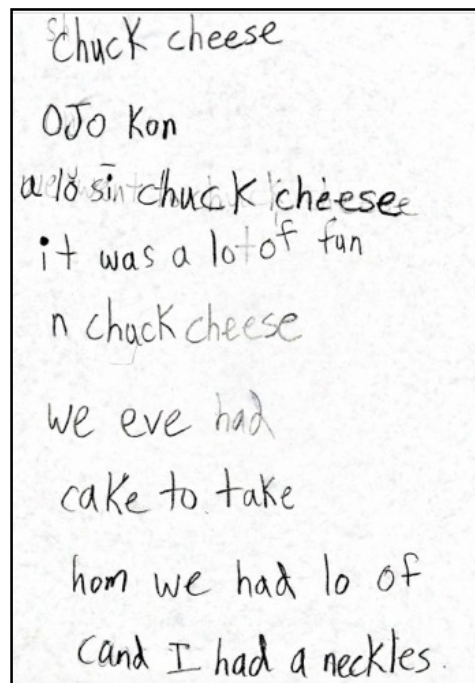 chuck cheese
OJO Kon
a lo sin chuck cheese
it was a lot of fun
n chuck cheese
we eve had
cake to take
hom we had lo of
cand I had a neckles.